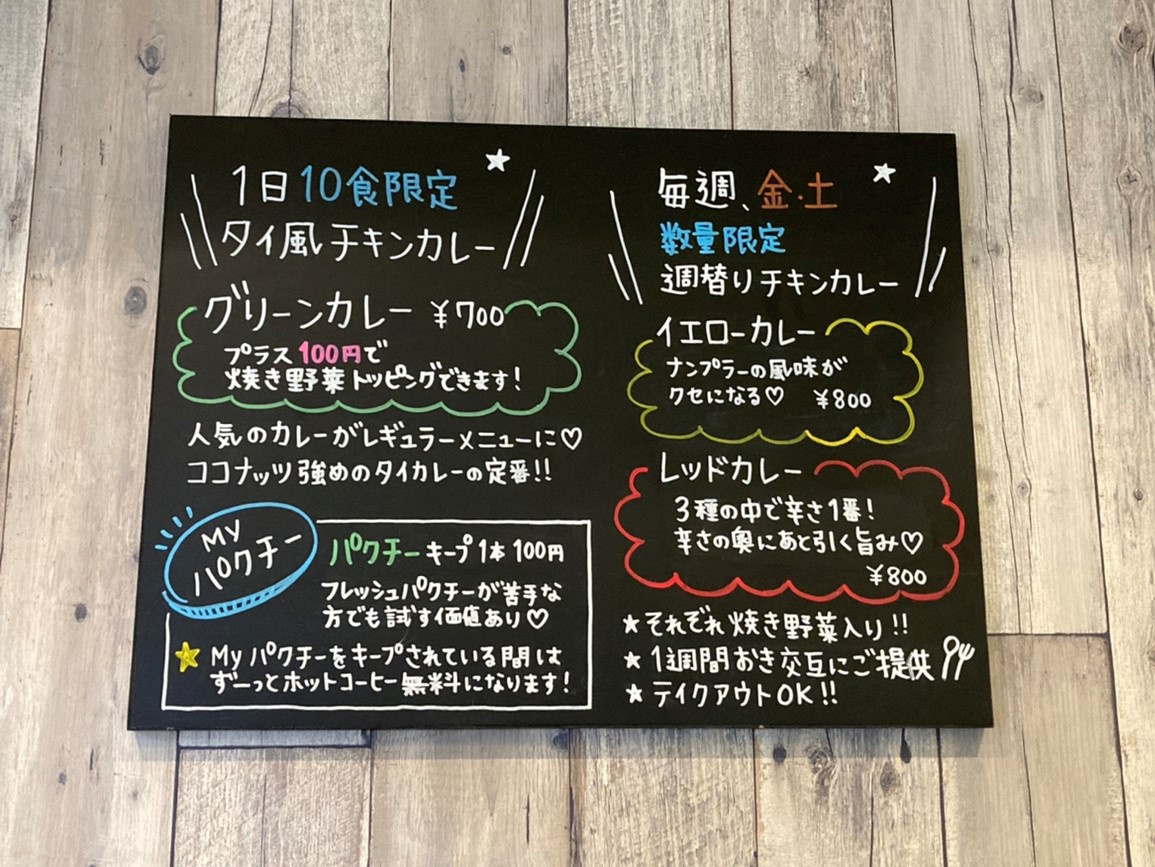 1日10食限定
タイ風チキンカレー
グリーンカレー ¥700
プラス100円で
焼き野菜トッピングできます!
人気のカレーがレギュラーメニューに♡
ココナッツ強めのタイカレーの定番!!
My
パクチー
パクチーキープ1本100円
フレッシュパクチーが苦手な
方でも試す価値あり♡
★Myパクチーをキープされている間は
ずーっとホットコーヒー無料になります!
毎週、金・土
数量限定
週替りチキンカレー
イエローカレー
ナンプラーの風味が
クセになる♡ ¥800
レッドカレー
3種の中で辛さ1番!
辛さの奥にあと引く旨み♡
¥800
★それぞれ焼き野菜入り!!
★1週間おき交互にご提供
★テイクアウトOK!!